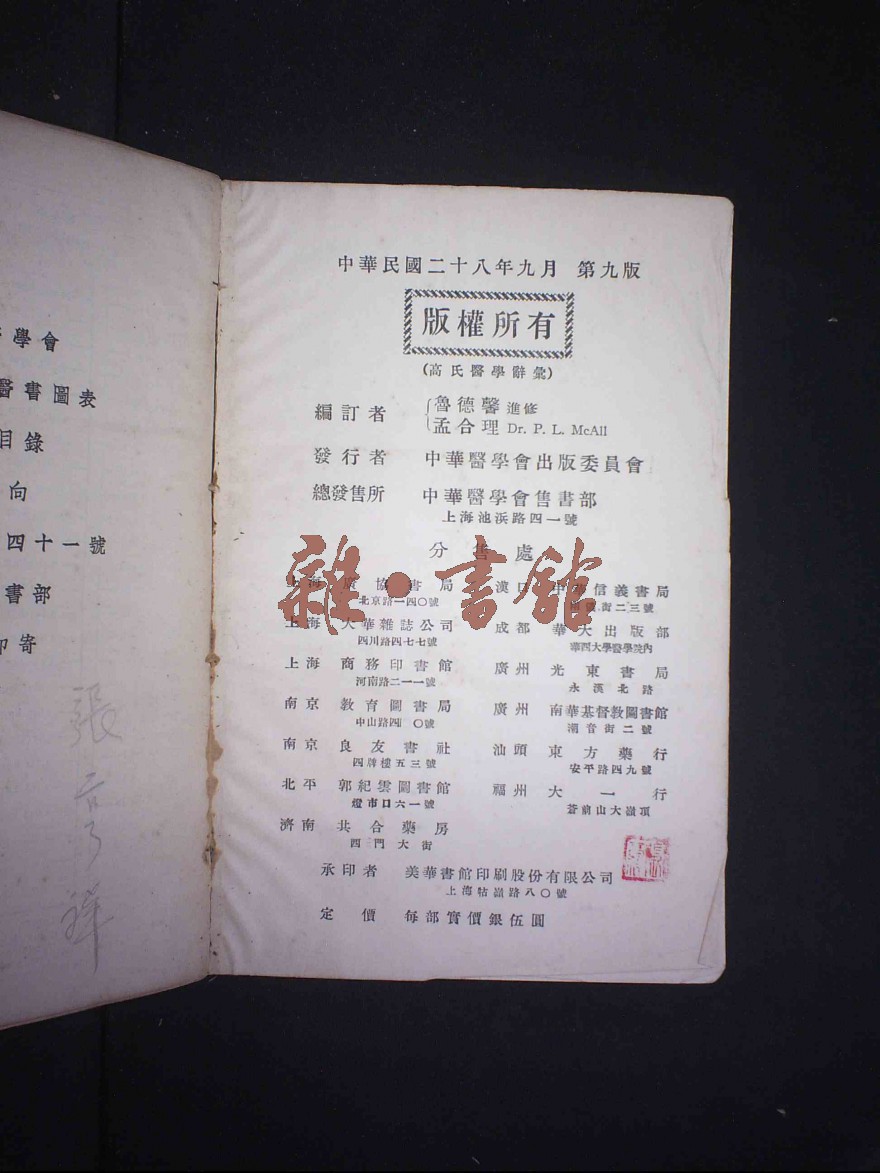 中華民國二十八年九月 第九版
版權所有
(高氏醫學辭彙)
編訂者 魯德馨 進修
孟合理 Dr. P. L. McAll
發行者 中華醫學會出版委員會
總發售所 中華醫學會售書部
上海池浜路四一號
分售處
雜·書館
上海 廣協書局
北京路一四〇號
上海 大華雜誌公司
四川路四七七號
上海 商務印書館
河南路二一一號
南京 教育圖書局
中山路四 〇號
南京 良友書社
四牌樓五三號
北平 郭紀雲圖書館
燈市口六一號
濟南 共合藥房
西門大街
漢口 中華信義書局
街二三號
成都 華大出版部
華西大學醫學院內
廣州 光東書局
永漢北路
廣州 南華基督教圖書館
潮音街二號
汕頭 東方藥行
安平路四九號
福州 大一行
蒼前山大嶺頂
承印者 美華書館印刷股份有限公司
上海牯嶺路八〇號
定價 每部實價銀伍圓
學會
醫書圖表
目錄
向
四十一號
書部
即寄
張